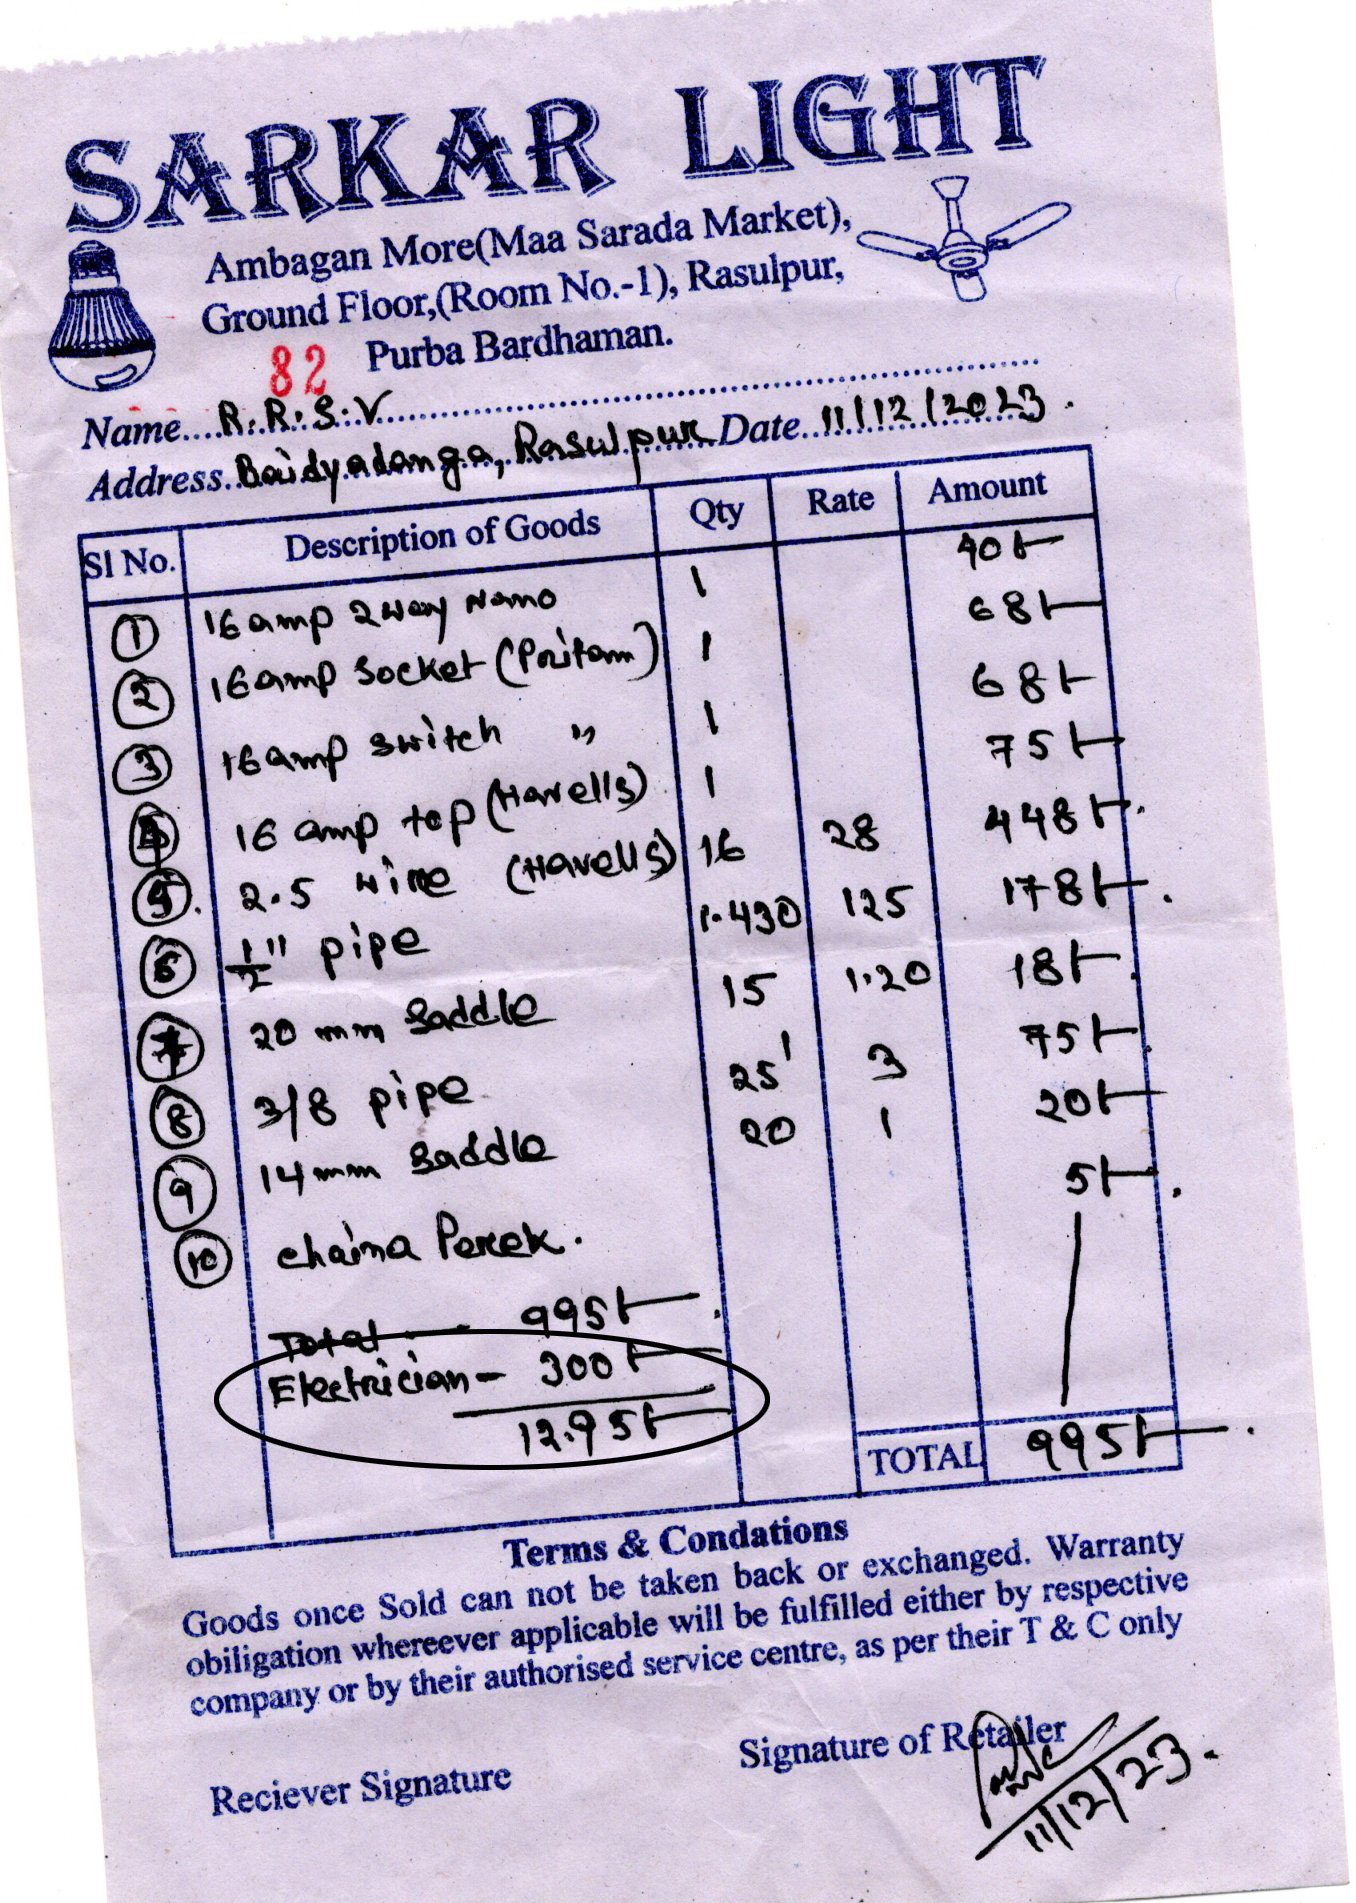 SARKAR LIGHT
Ambagan More(Maa Sarada Market),
Ground Floor,(Room No.-1), Rasulpur,
Purba Bardhaman.
82
Name....R.R.S.V
Address..Baidyadanga, Rasulpur Date..11/12/2023.
Sl No. Description of Goods Qty Rate Amount
1 16 amp 2way Nano 1 40/-
2 16 amp Socket (Pritam) 1 68/-
3 16 amp switch " 1 68/-
4 16 amp top (Havells) 1 75/-
5. 2.5 wire (Havells) 16 28 448/-.
6 1/2" pipe 1.430 125 178/-.
7 20 mm Saddle 15 1.20 18/-.
8 3/8 pipe 25' 3 75/-.
9 14 mm Saddle 20 1 20/-
10 chaina Perek. 5/-.
Total — 995/-.
Electrician - 300/-
12.95/-
TOTAL 995/-.
Terms & Condations
Goods once Sold can not be taken back or exchanged. Warranty
obiligation whereever applicable will be fulfilled either by respective
company or by their authorised service centre, as per their T & C only
Signature of Retailer
11/12/23.
Reciever Signature